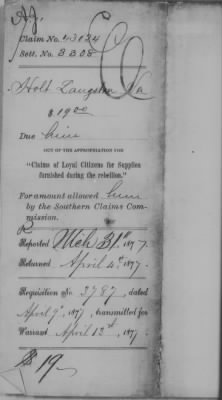 Claim No. 43034
Sett. No. 3308
Holt Langston Va
$19.00
Due him
OUT OF THE APPROPRIATION FOR
"Claims of Loyal Citizens for Supplies
furnished during the rebellion."
For amount allowed him
by the Southern Claims Com-
mission.
Reported Mch 31st 1877.
Returned April 4th, 1877.
Requisition No. 3787, dated
April 9th, 1877, transmitted for
Warrant April 12th, 1877.
$19—